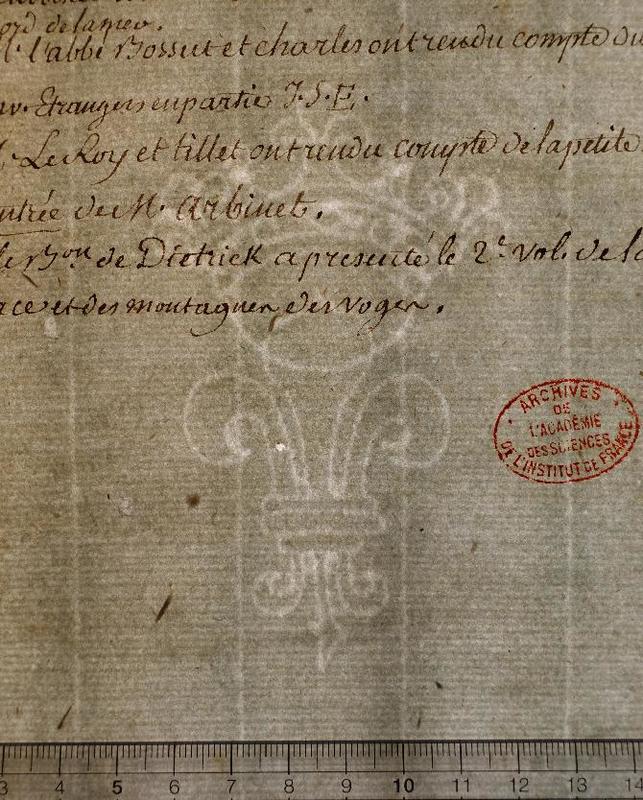 ord de la mer.
l'abbé Bossut et charles ont rendu compte du
Etrangers en partie J.S.E.
Le Roy et tillet ont rendu compte de la petite
ntrée de M. Arbinet.
le Bon de Dietrick a presenté le 2e vol. de la
ace et des montagnes des voges.
ARCHIVES
DE
L'ACADÉMIE
DES SCIENCES
DE L'INSTITUT DE FRANCE
3 4 5 6 7 8 9 10 11 12 13 14